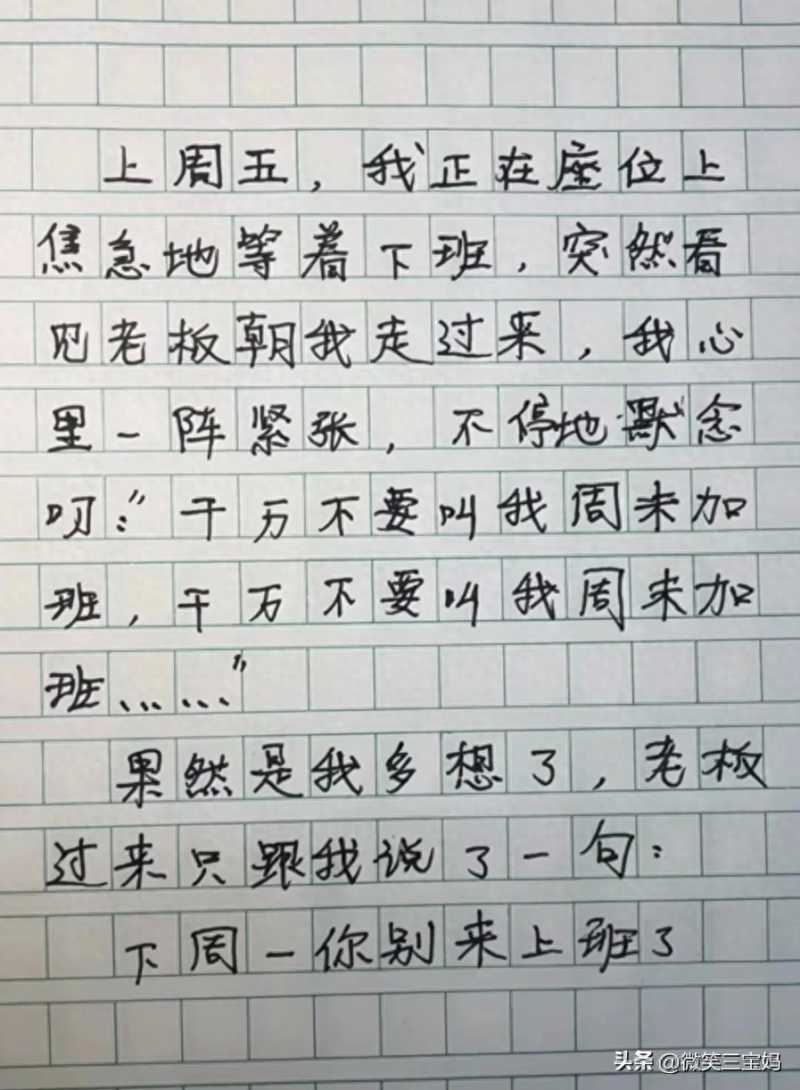 上周五，我正在座位上
焦急地等着下班，突然看
见老板朝我走过来，我心
里一阵紧张，不停地默念
叨：“千万不要叫我周末加
班，千万不要叫我周末加
班……”
果然是我多想了，老板
过来只跟我说了一句：
下周一你别来上班了
头条 @微笑三宝妈